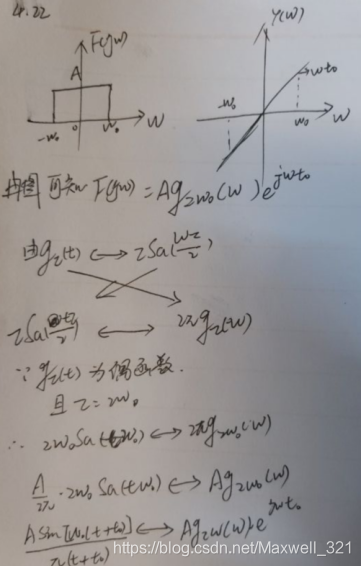 4.22
F(jw)
A
-w₀ 0 w₀ w
φ(w)
wt₀
-w₀ w₀ w
由图可知 F(jw) = Ag₂w₀(w)e^jwt₀
由g_τ(t) ↔ τSa(wτ/2)
τSa(tτ/2) ↔ 2πg_τ(w)
∵ g_τ(t) 为偶函数.
且 τ = 2w₀
∴ 2w₀Sa(tw₀) ↔ 2πg₂w₀(w)
A/2π · 2w₀Sa(tw₀) ↔ Ag₂w₀(w)
Asin[w₀(t+t₀)]/π(t+t₀) ↔ Ag₂w(w)·e^jwt₀
https://blog.csdn.net/Maxwell_321